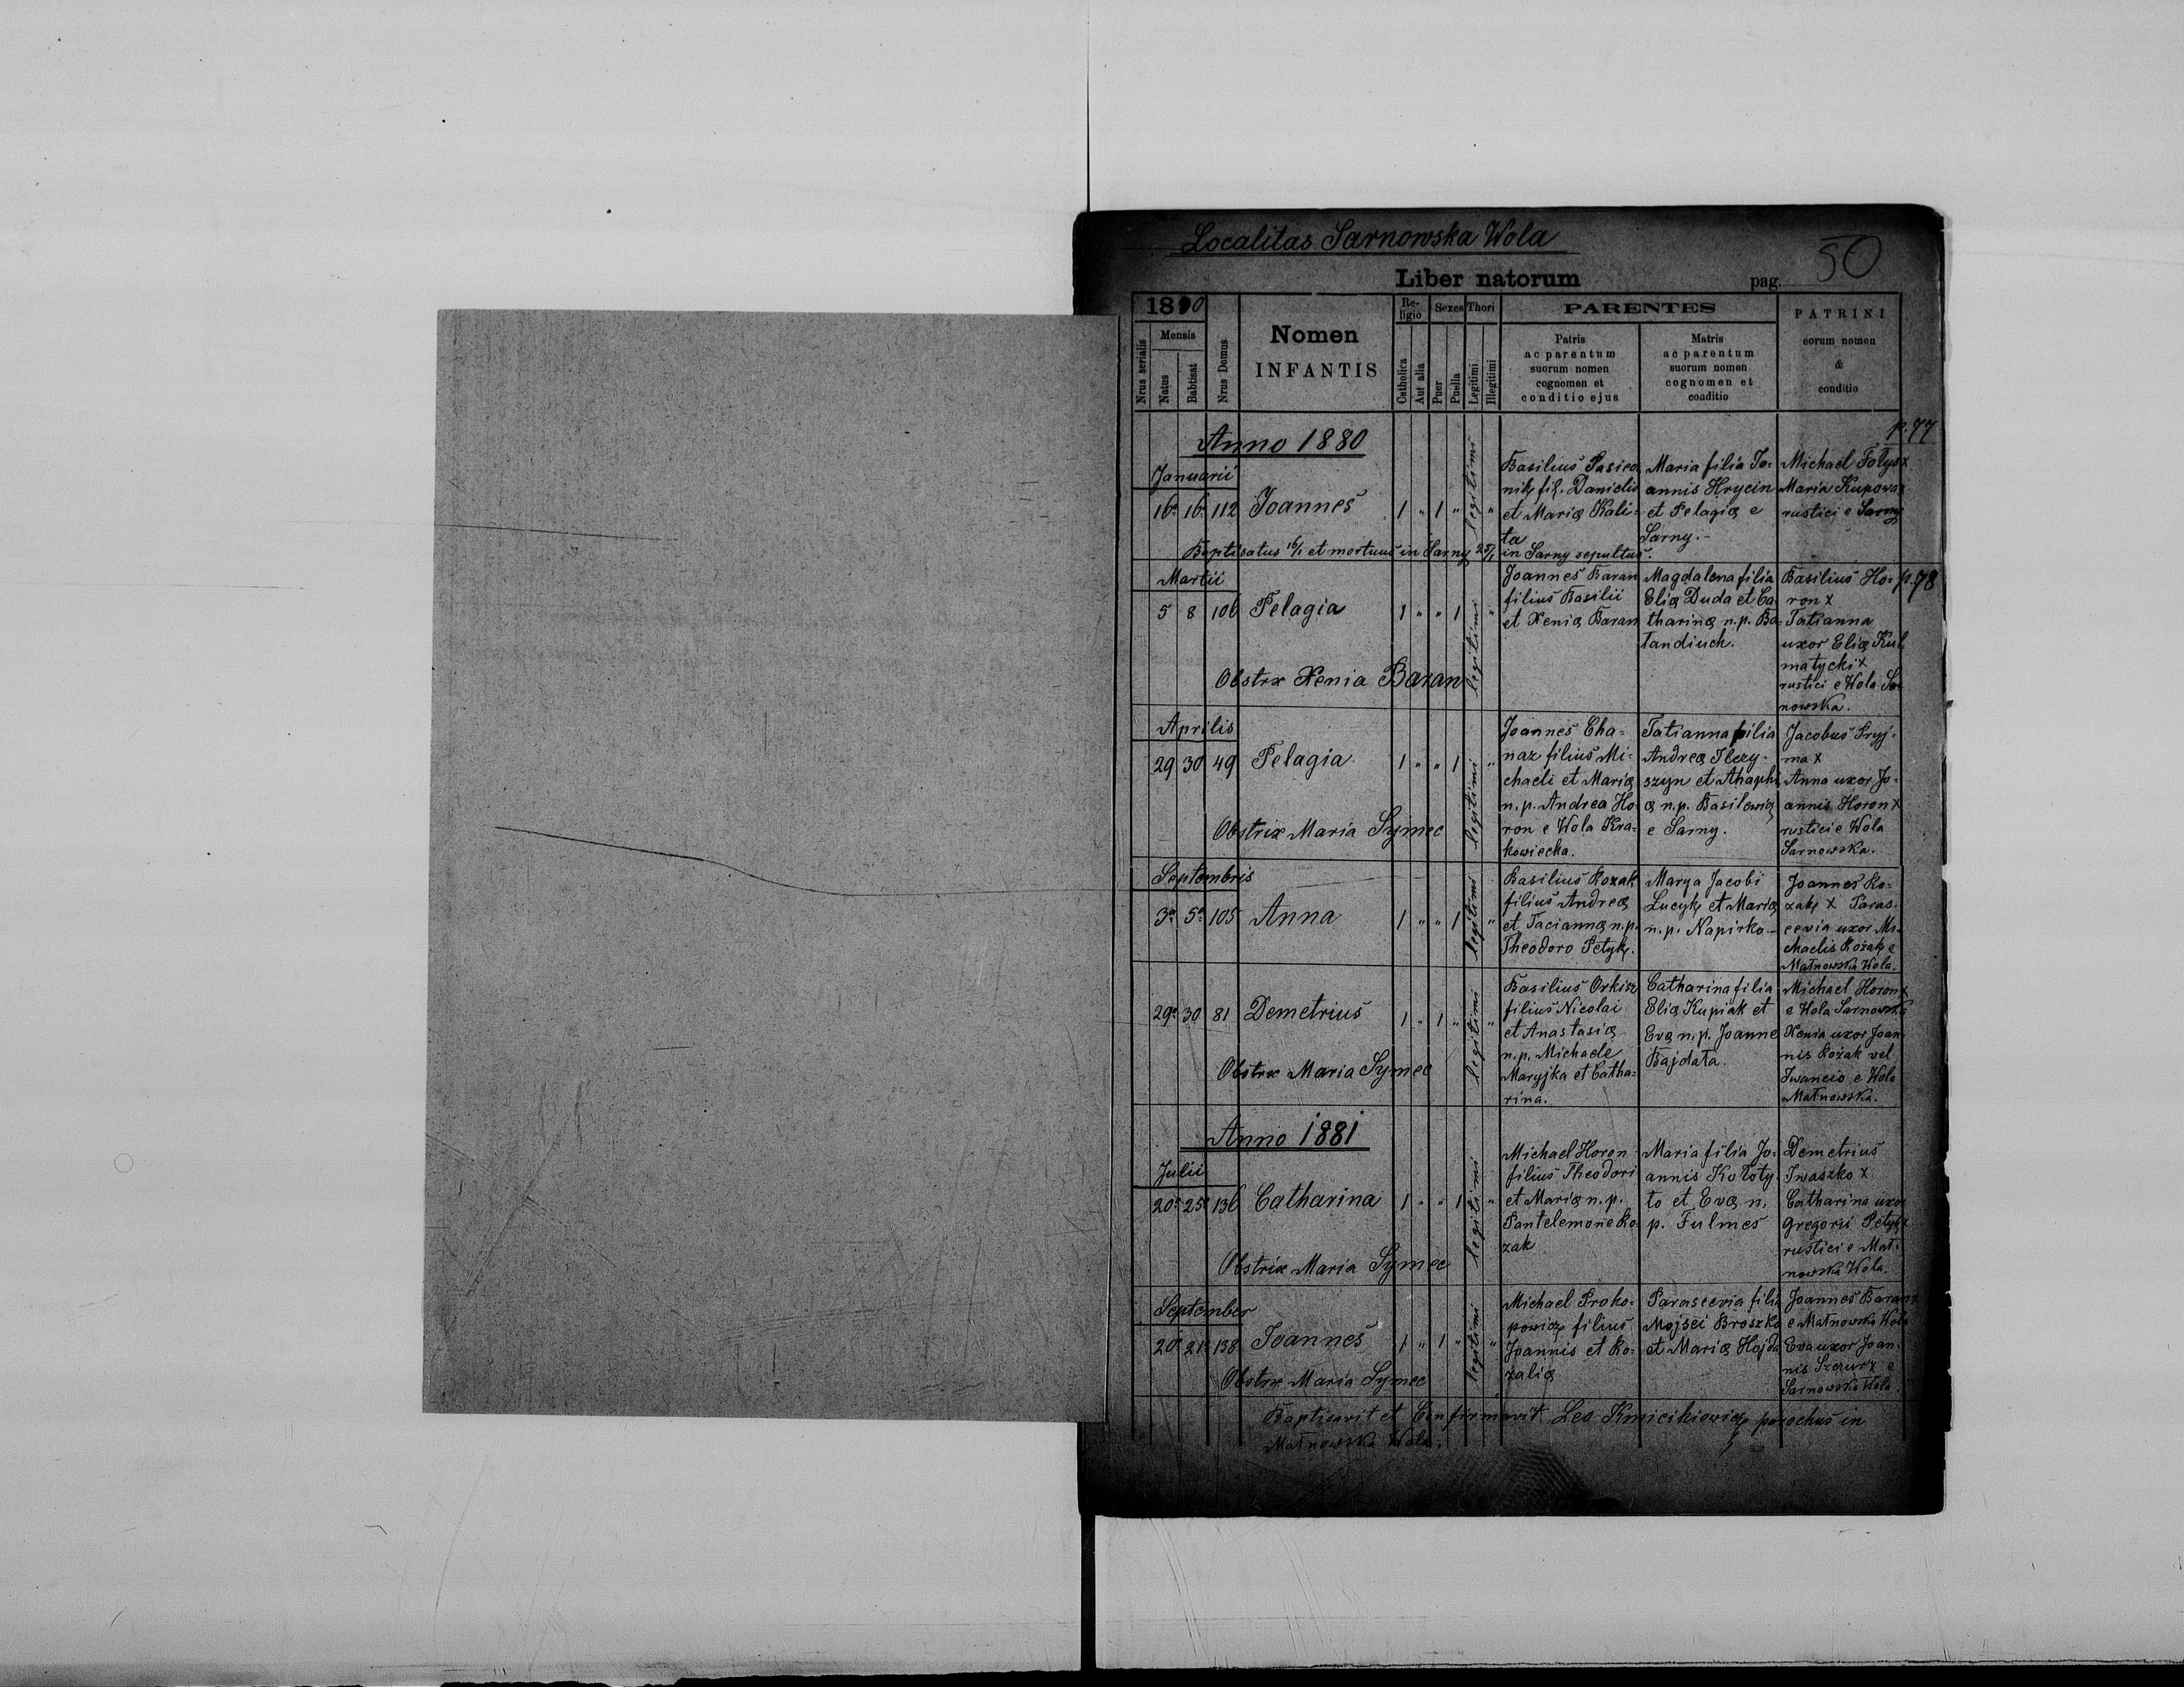 Localitas Sarnowska Wola
50
Liber natorum pag.
1880
Nrus serialis
Mensis
Natus
Babtisat
Nrus Domus
Nomen
INFANTIS
Religio
Catholica
Aut alia
Sexes
Puer
Puella
Thori
Legitimi
Illegitimi
PARENTES
Patris
ac parentum
suorum nomen
cognomen et
conditio ejus
Matris
ac parentum
suorum nomen
cognomen et
conditio
PATRINI
eorum nomen
&
conditio
p. 77
Anno 1880
Januarii
16. 16. 112 Joannes 1 " 1 " legitimi "
Basilius Pasieo
nik fil. Danielis
et Mariæ Kali-
ta
Maria filia Jo-
annis Hrycin
et Pelagiæ e
Sarny.-
Michael Fołys x
Maria Kupowa x
rustici e Sarny
Baptisatus 16/1 et mortuus in Sarny 25/1 in Sarny sepultus.
p. 78
Martii
5 8 106 Pelagia 1 " " 1 legitimi "
Joannes Baran
filius Basilii
et Xeniæ Baran
Magdalena filia
Eliæ Duda et Ca
tharinæ n.p. Ba-
tandiuch.
Basilius Ho-
ron x
Tatianna
uxor Eliæ Kul
matycki x
rustici e Wola Sar
nowska.
Obstrx Xenia Baran
Aprilis
29 30 49 Pelagia 1 " " 1 legitimi "
Joannes Cha-
naz filius Mi-
chaeli et Mariæ
n.p. Andrea Ho-
ron e Wola Kra-
kowiecka.
Tatianna filia
Andreæ Ilczy-
szyn et Ahaphi
æ n.p. Basilewicz
e Sarny.
Jacobus Pryj-
ma x
Anna uxor Jo-
annis Horon x
rustici e Wola
Sarnowska.
Obstrix Maria Symec
Septembris
3. 5. 105 Anna 1 " " 1 legitimi "
Basilius Kozak
filius Andreæ
et Taciannæ n.p.
Theodoro Petyk.
Marya Jacobi
Lucyk et Mariæ
n.p. Napirko.-
Joannes Ko-
zak x Paras-
cevia uxor Mi-
chaelis Kozak e
Małnowska Wola.
29. 30 81 Demetrius 1 " 1 " legitimi "
Basilius Orkisz
filius Nicolai
et Anastasiæ
n.p. Michaele
Maryjka et Catha-
rina.
Catharina filia
Eliæ Kupiak et
Evæ n.p. Joanne
Bajdała.
Michael Horon x
e Wola Sarnowska
Xenia uxor Joan-
nis Kozak vel
Iwancio e Wola
Małnowska.
Obstrx Maria Symec
Anno 1881
Julii
20. 25. 136 Catharina 1 " " 1 legitimi "
Michael Horon
filius Theodori
et Mariæ n.p.
Pantelemone Ko
zak
Maria filia Jo-
annis Kołoty-
to et Evæ n.
p. Fulmes
Demetrius
Iwaszko x
Catharina uxor
Gregorii Petyk x
rustici e Mał-
nowska Wola.
Obstrix Maria Symec
September
20. 21. 138 Joannes 1 " 1 " legitimi "
Michael Proko-
powicz filius
Joannis et Ro-
zaliæ
Parascevia filia
Mojsei Broszko
et Mariæ Hojda
Joannes Baran x
e Małnowska Wola
Eva uxor Joan-
nis Szczur x e
Sarnowska Wola.
Obstrx Maria Symec
Baptisavit et Confirmavit Leo Kmicikiewicz parochus in
Małnowska Wola.